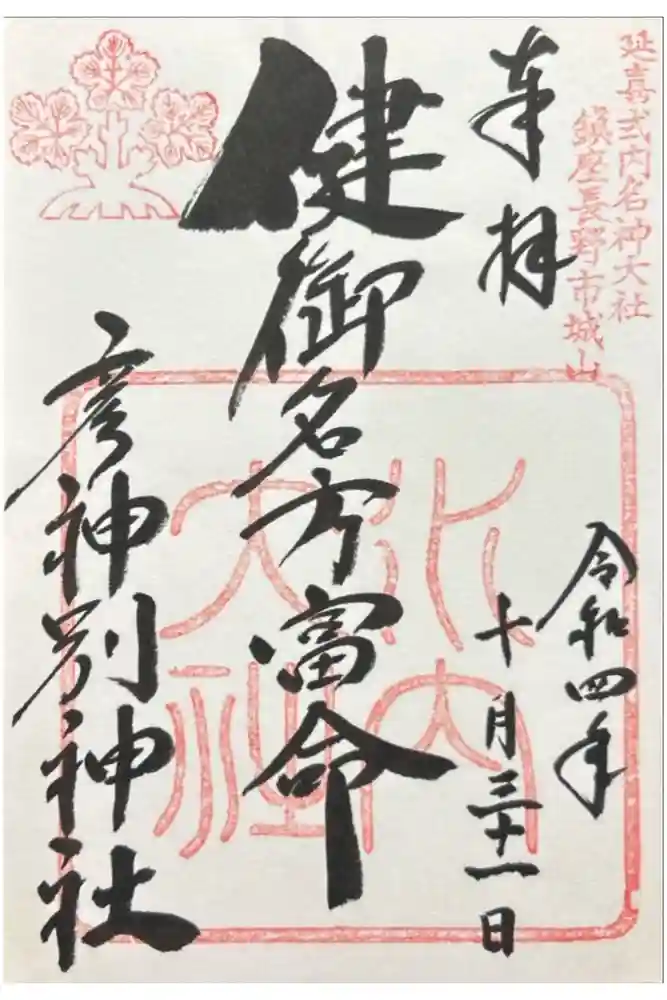 延喜式内名神大社
鎮座長野市城山
奉拝
令和四年
十月三十一日
健御名方富命
彦神別神社